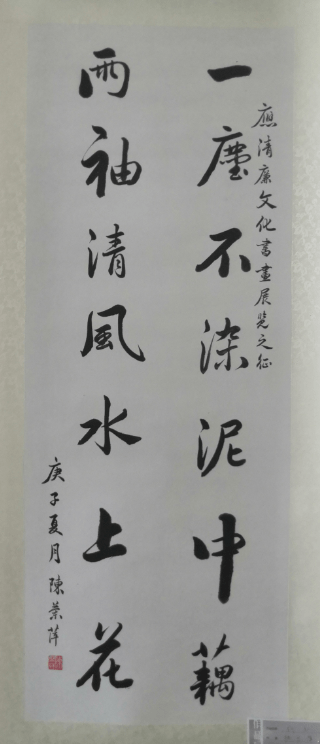 應清廉文化書畫展覽之征
一塵不染泥中藕
兩袖清風水上花
庚子夏月陳榮萍